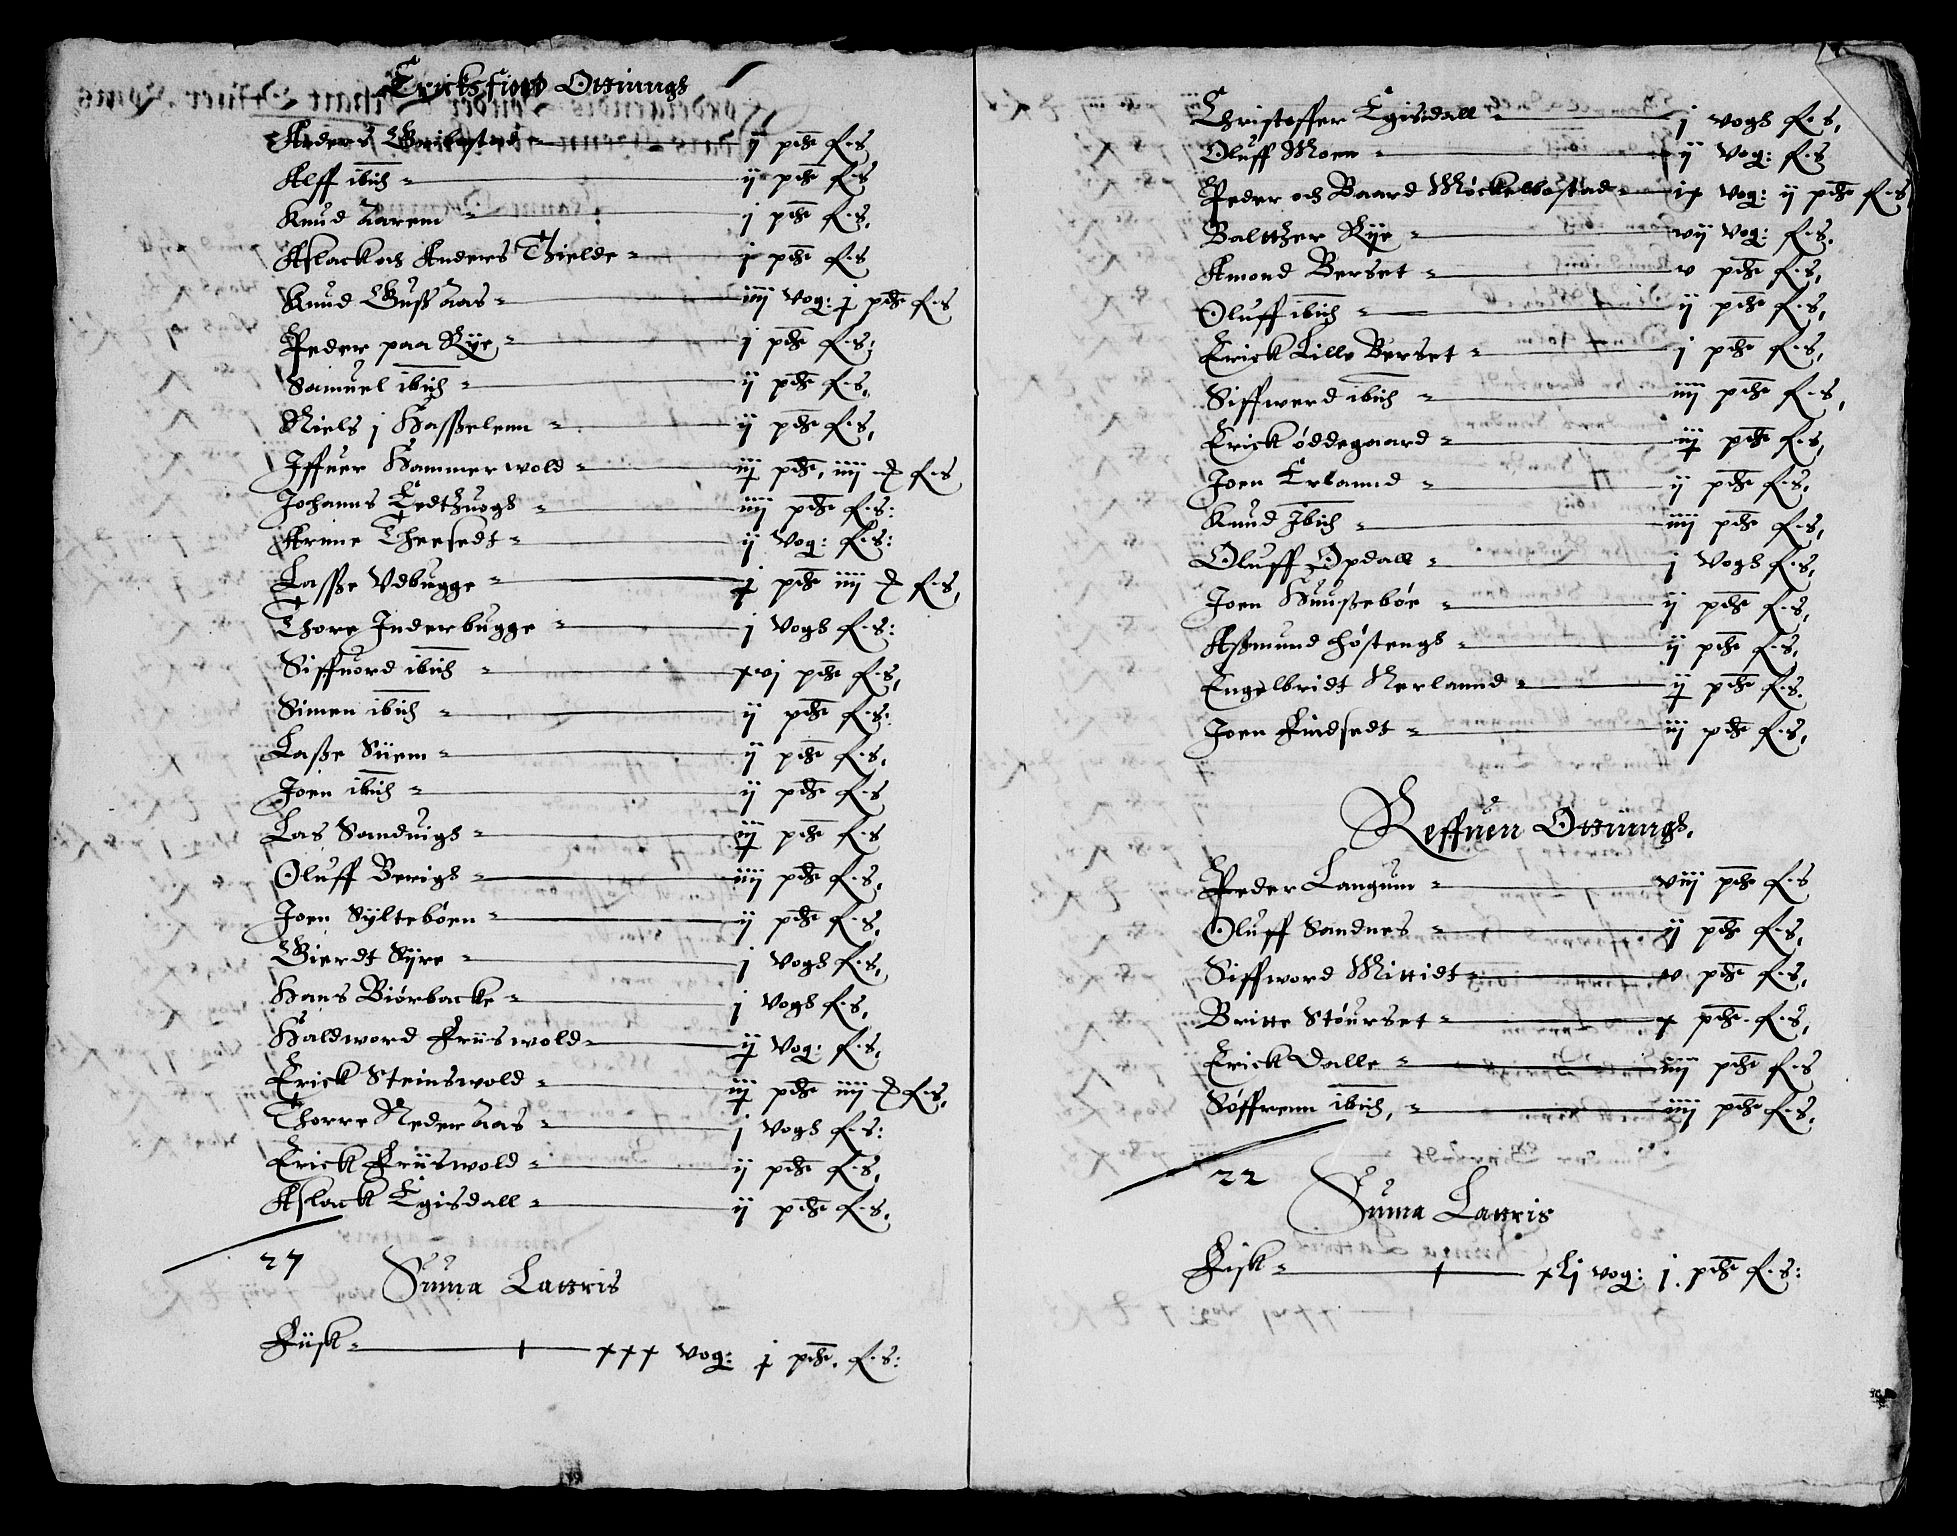 Ericksfiord Ottiungs
Anders Gribestad - ij pd f.s
Alff ibid - ij pd f.s
Knud Aarem - j pd f.s.
Aslack och Anders Thielde - j pd f.s
Knud Guss Aas - iiij vog: j pd f.s
Peder paa Rye - j pd f.s:
Samuel ibid - ij pd f.s,
Niels j Hasselenn - ij pd f.s,
Iffuer Hammerwold - iij pd, iiij f.s
Johanns - iiij pd f.s:
Arnne Theesedt - ij vog: f.s:
Lasse Udbugge - j pd iiij f.s,
Thore Inderbugge - j vogh f.s:
Siffuord ibid - xvj pd f.s,
Simen ibid - ij pd f.s:
Lasse Siiem - ij pd f.s,
Joen ibid - ij pd f.s
Las Sanduigh - iij pd f.s
Oluff Berigh - iiij pd f.s,
Joen Syltebøen - ij pd f.s,
Gierdt Syre - j vogh f.s,
Hans Biørbacke - j vogh f.s,
Haldword Friiswold - ij vog: f.s,
Erick Steinswold - iij pd iiij f.s,
Thorre Neder Aas - j vogh f.s:
Erick Friiswold - ij pd f.s,
Aslack Egisdall - ij pd f.s,
27
Suma Lattris
Fiisk - xxx vog: j pd. f.s:
Christoffer Egisdall - j vogh f.s,
Oluff Moen - ij vog: f.s
Peder och Baard Møckelbostad - ix vog: ij pd f.s
Baltzer Rye - vij vog: f.s.
Amond Berset - v pd f.s,
Oluff ibid - ij pd f.s,
Erick Lille Berset - j pd f.s,
Siffwerd ibid - iiij pd f.s,
Erick øddegaard - iij pd f.s,
Joen Erlannd - ij pd f.s,
Knud Ibid - iiij pd f.s,
Oluff Opdall - j vogh f.s,
Joen Huussebøe - ij pd f.s,
Assmund høstengh - ij pd f.s,
Engelbridt Nerlannd - ij pd f.s.
Joen Findsedt - iij pd f.s,
Reffuen Ottiungh.
Peder Langum - viij pd f.s
Oluff Sandnes - ij pd f.s,
Siffword Mittidt - v pd f.s,
Britte Støurset - x pd. f.s,
Erick Dalle - iiij pd f.s
Søffrenn ibid, - iiij pd f.s.
22
Suma Lattris
Fisk - xlj vog: j. pd f.s: